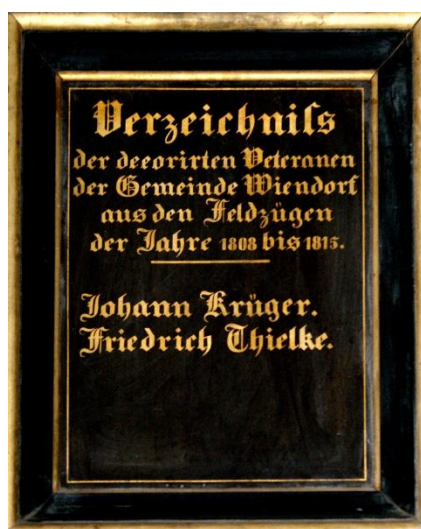 Verzeichniſs
der decorirten Veteranen
der Gemeinde Wiendorf
aus den Feldzügen
der Jahre 1808 bis 1815.
Johann Krüger.
Friedrich Thielke.